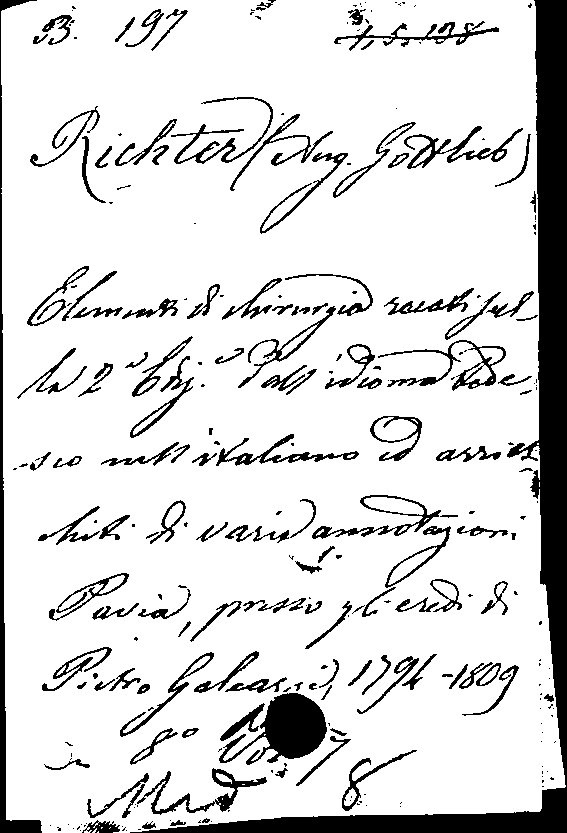 B. 197 4, 5, 138
Richter (Aug. Gottlieb)
Elementi di chirurgia recati sul-
la 2ª Ediz.ᵉ dall'idioma tede-
sco nell'italiano ed arric-
chiti di varie annotazioni
Pavia, presso gli eredi di
Pietro Galeazzi, 1794-1809
in 8° Vol. 7
Med 8